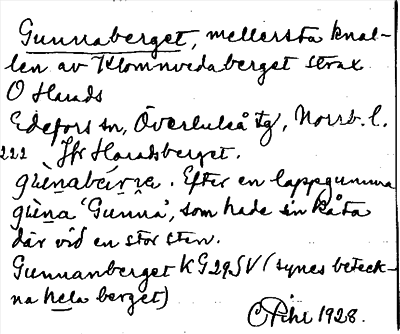 Gunnaberget, mellersta knal-
len av Klomnvedaberget strax
O Harads
Edefors sn, Överluleå tg, Norrb. l.
222 Jfr Haradsberget.
gùǹabǽrɲe. Efter en lappgumma
gùǹa 'Gunna', som hade sin kåta
där vid en stor sten.
Gunnanberget KG29SV (synes beteck-
na hela berget)
C Pihl 1928.